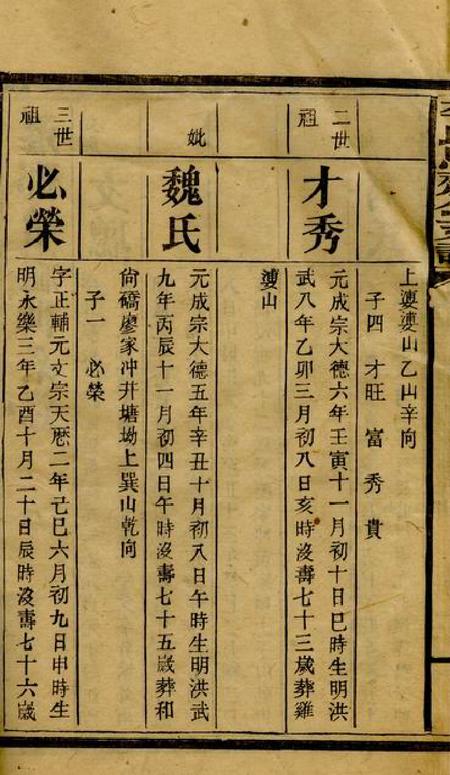 上婆婆山乙山辛向
子四 才旺 富 秀 貴
二世祖
才秀
元成宗大德六年壬寅十一月初十日巳時生明洪
武八年乙卯三月初八日亥時沒壽七十三歲葬雞
婆山
妣
魏氏
元成宗大德五年辛丑十月初八日午時生明洪武
九年丙辰十一月初四日午時沒壽七十五歲葬和
尙礄廖家冲井塘坳上巽山乾向
子一 必榮
三世祖
必榮
字正輔元文宗天厯二年己巳六月初九日申時生
明永樂三年乙酉十月二十日辰時沒壽七十六歲